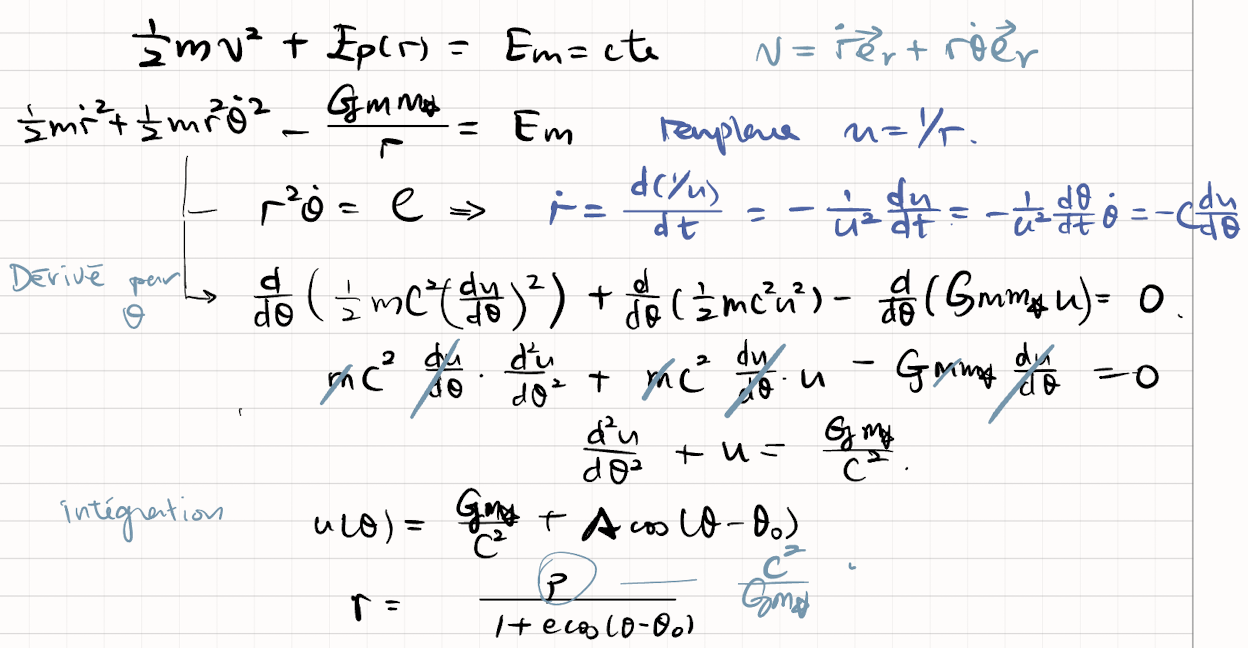 ½mv² + Ep(r) = Em = cte    v = ṙe⃗r + rθ̇e⃗r
½mṙ² + ½mr²θ̇² − Gmm☆/r = Em    remplace u = 1/r.
r²θ̇ = C ⇒ ṙ = d(1/u)/dt = −1/u² du/dt = −1/u² dθ/dt θ̇ = −C du/dθ
Dérivé par θ → d/dθ(½mC²(du/dθ)²) + d/dθ(½mc²u²) − d/dθ(Gmm☆u) = 0.
mC² du/dθ · d²u/dθ² + mC² du/dθ · u − Gmm☆ du/dθ = 0
d²u/dθ² + u = Gm☆/C².
intégration    u(θ) = Gm☆/C² + A cos(θ−θ₀)
r = p/(1 + e cos(θ−θ₀)) — C²/Gm☆